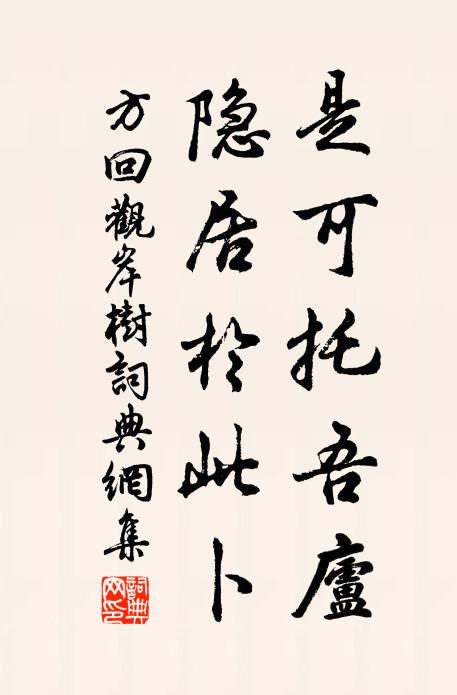 是可托吾廬
隐居於此卜
方回觀岸樹詞典網集
詞典网印